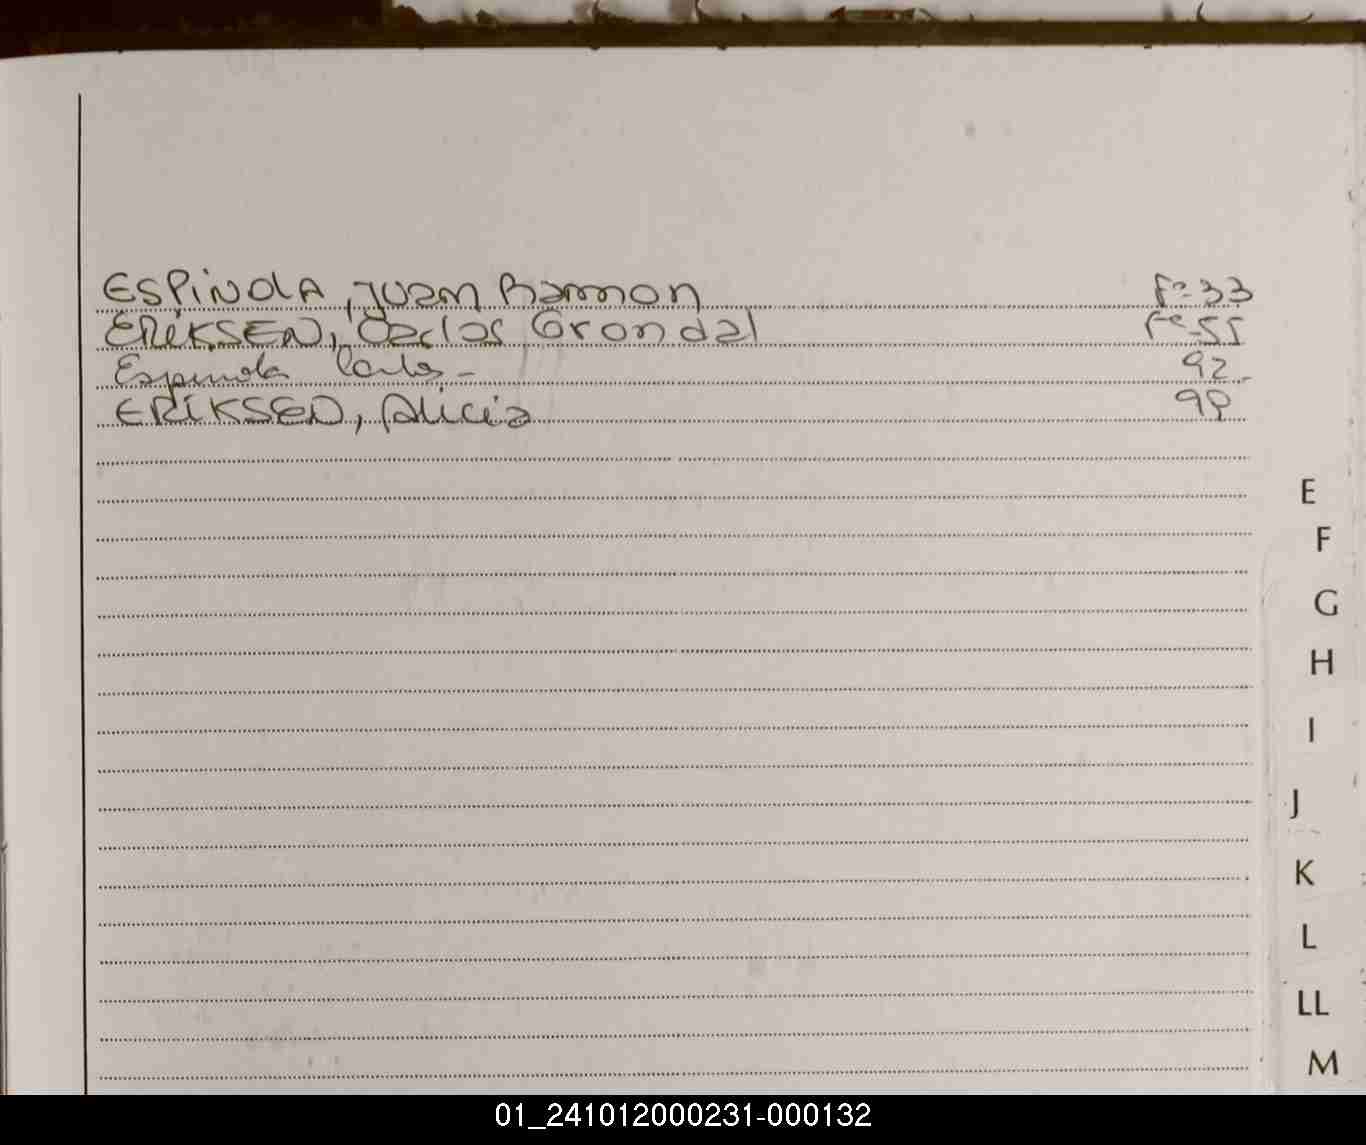 ESPINOLA, Juan Ramon Fº-33
ERIKSEN, Carlos Grondal Fº-55
Espinola Carlos - 92-
ERIKSEN, Alicia 99
E
F
G
H
I
J
K
L
LL
M
01_241012000231-000132